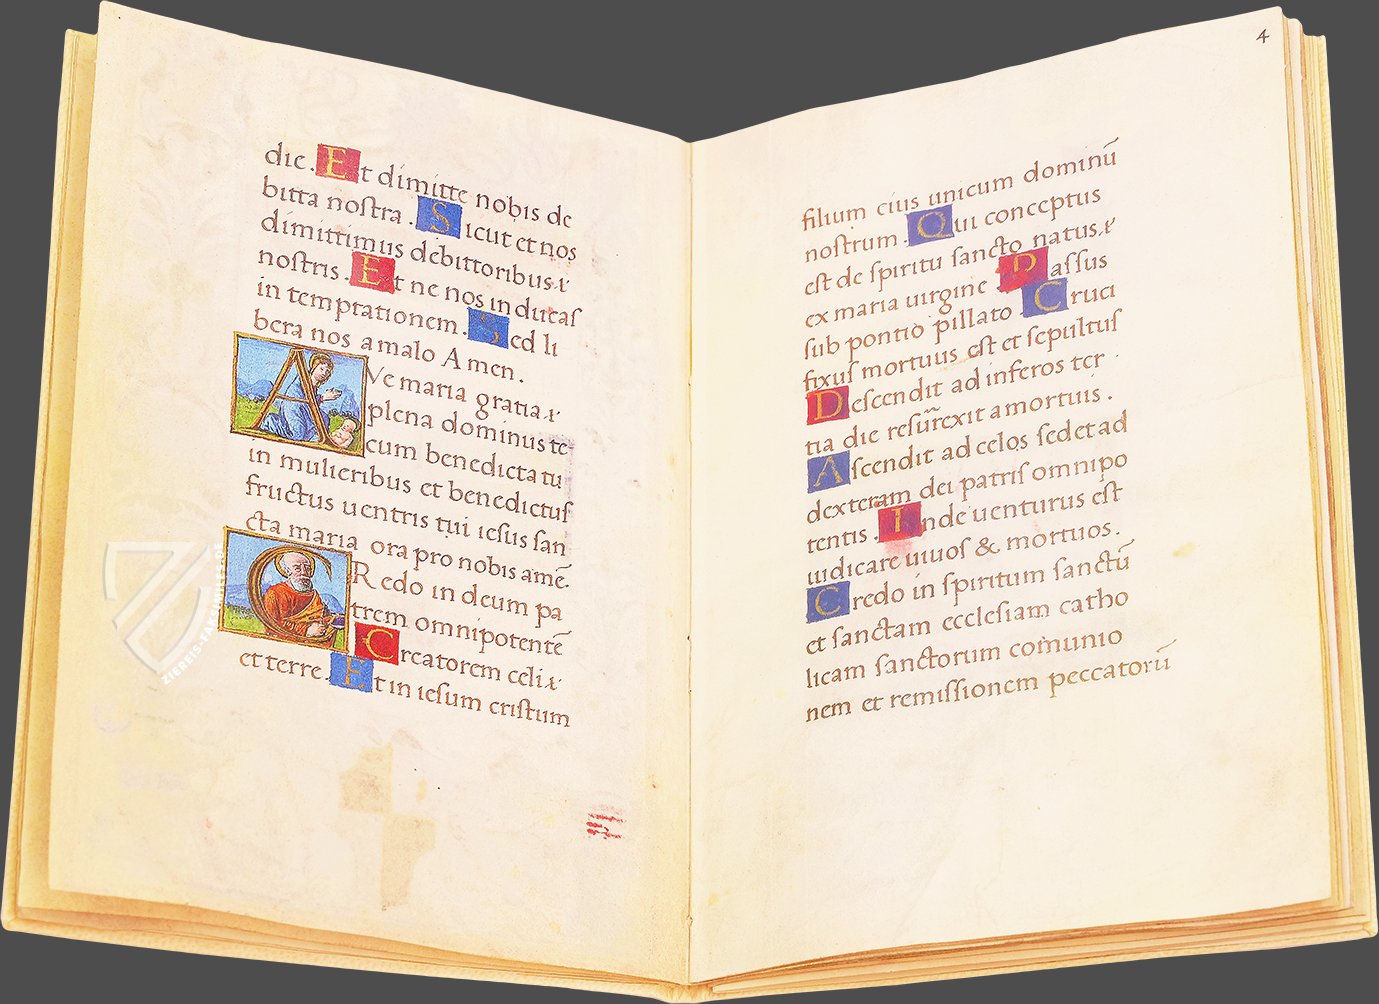 die. Et dimitte nobis de
bitta nostra. Sicut et nos
dimittimus debittoribus. &
nostris. Et ne nos inducas
in temptationem. Sed li
bera nos amalo Amen.
AVe maria gratia. &
plena dominus te-
cum benedicta tu
in mulieribus et benedictus
fructus uentris tui iesus san
cta maria ora pro nobis amē.
CRedo in deum pa
trem omnipotentē
Creatorem celi &
et terre. Et in iesum cristum
4
filium eius unicum dominū
nostrum. Qui conceptus
est de spiritu sancto natus. &
ex maria uirgine. Passus
sub pontio pillato. Cruci
fixus mortuus est et sepultus
Descendit ad inferos ter
tia die resurexit amortuis.
Ascendit ad celos sedet ad
dexteram dei patris omnipo
tentis. Inde uenturus est
iudicare uiuos & mortuos.
Credo in spiritum sanctū
et sanctam ecclesiam catho
licam sanctorum comunio
nem et remissionem peccatorū